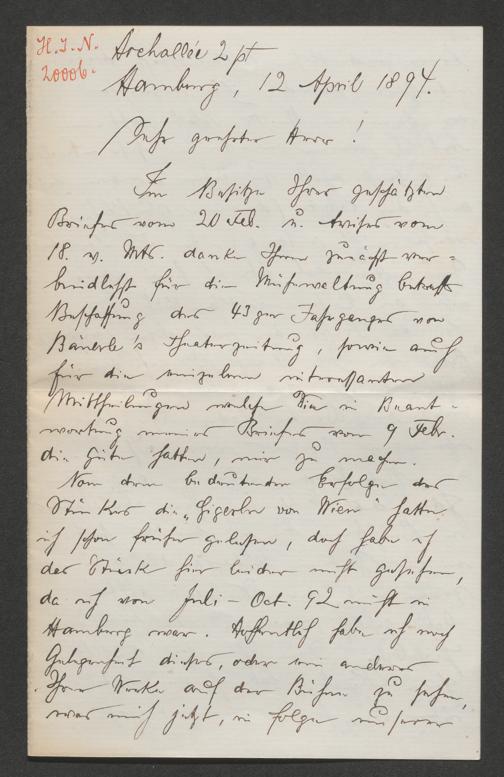 H.I.N.
20006.
Archallée 2 pt
Hamburg, 12 April 1894.
Sehr geehrter Herr!
Im Besitze Ihres geschätzten
Briefes vom 20 Feb. u. Avises vom
18. v. Mts. danke Ihnen zunächst ver-
bindlichst für die Mühewaltung betreffs
Beschaffung des 43ger Jahrganges von
Bäuerle's Theaterzeitung, sowie auch
für die einzelnen interessanten
Mittheilungen welche Sie in Beant-
wortung meines Briefes vom 9 Febr.
die Güte hatten, mir zu machen.
Von dem bedeutenden Erfolge des
Stückes die „Gigerln von Wien" hatte
ich schon früher gelesen, doch habe ich
das Stück hier leider nicht gesehen,
da ich von Juli – Oct. 92 nicht in
Hamburg war. Hoffentlich habe ich noch
Gelegenheit dieses, oder ein anderes
Ihrer Werke auf der Bühne zu sehen,
was mich jetzt, in Folge unserer